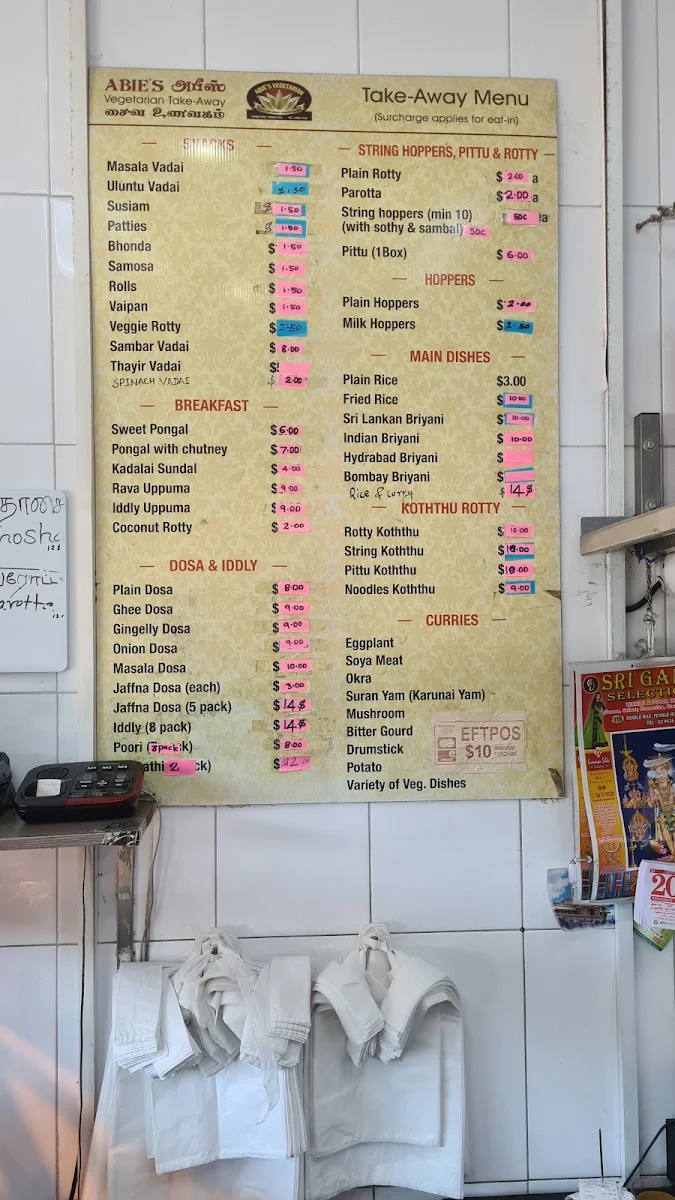 ABIE'S அபீஸ்
Vegetarian Take-Away
சைவ உணவகம்
ABIE'S VEGETARIAN
Take-Away Menu
(Surcharge applies for eat-in)
SNACKS
Masala Vadai 1.50
Uluntu Vadai $1.50
Susiam $ 1.50
Patties $ 1.50
Bhonda $ 1.50
Samosa $ 1.50
Rolls $ 1.50
Vaipan $ 1.50
Veggie Rotty $ 2.50
Sambar Vadai $ 8.00
Thayir Vadai $
SPINACH VADAI $ 2.00
BREAKFAST
Sweet Pongal $ 6.00
Pongal with chutney $ 7.00
Kadalai Sundal $ 4.00
Rava Uppuma $ 9.00
Iddly Uppuma $ 9.00
Coconut Rotty $ 2.00
DOSA & IDDLY
Plain Dosa $ 8.00
Ghee Dosa $ 9.00
Gingelly Dosa $ 9.00
Onion Dosa $ 9.00
Masala Dosa $ 10.00
Jaffna Dosa (each) $ 3.00
Jaffna Dosa (5 pack) $ 14$
Iddly (8 pack) $ 14$
Poori (3pack) $ 8.00
athi 2 ck) $12.0
STRING HOPPERS, PITTU & ROTTY
Plain Rotty $ 2.00 a
Parotta $ 2.00 a
String hoppers (min 10) 50c ea
(with sothy & sambal) 50c
Pittu (1Box) $ 6.00
HOPPERS
Plain Hoppers $ 2.00
Milk Hoppers $ 2.50
MAIN DISHES
Plain Rice $3.00
Fried Rice $ 10.00
Sri Lankan Briyani $ 10.00
Indian Briyani $ 10.00
Hydrabad Briyani $
Bombay Briyani $
Rice & curry $ 14$
KOTHTHU ROTTY
Rotty Koththu $ 10.00
String Koththu $ 10.00
Pittu Koththu $ 10.00
Noodles Koththu $ 9.00
CURRIES
Eggplant
Soya Meat
Okra
Suran Yam (Karunai Yam)
Mushroom
Bitter Gourd
Drumstick
Potato
Variety of Veg. Dishes
EFTPOS
$10 MINIMUM PURCHASE
தோசை
hosh
12$
பரோட்
arotta
12
SRI GA
SELECTIO
20